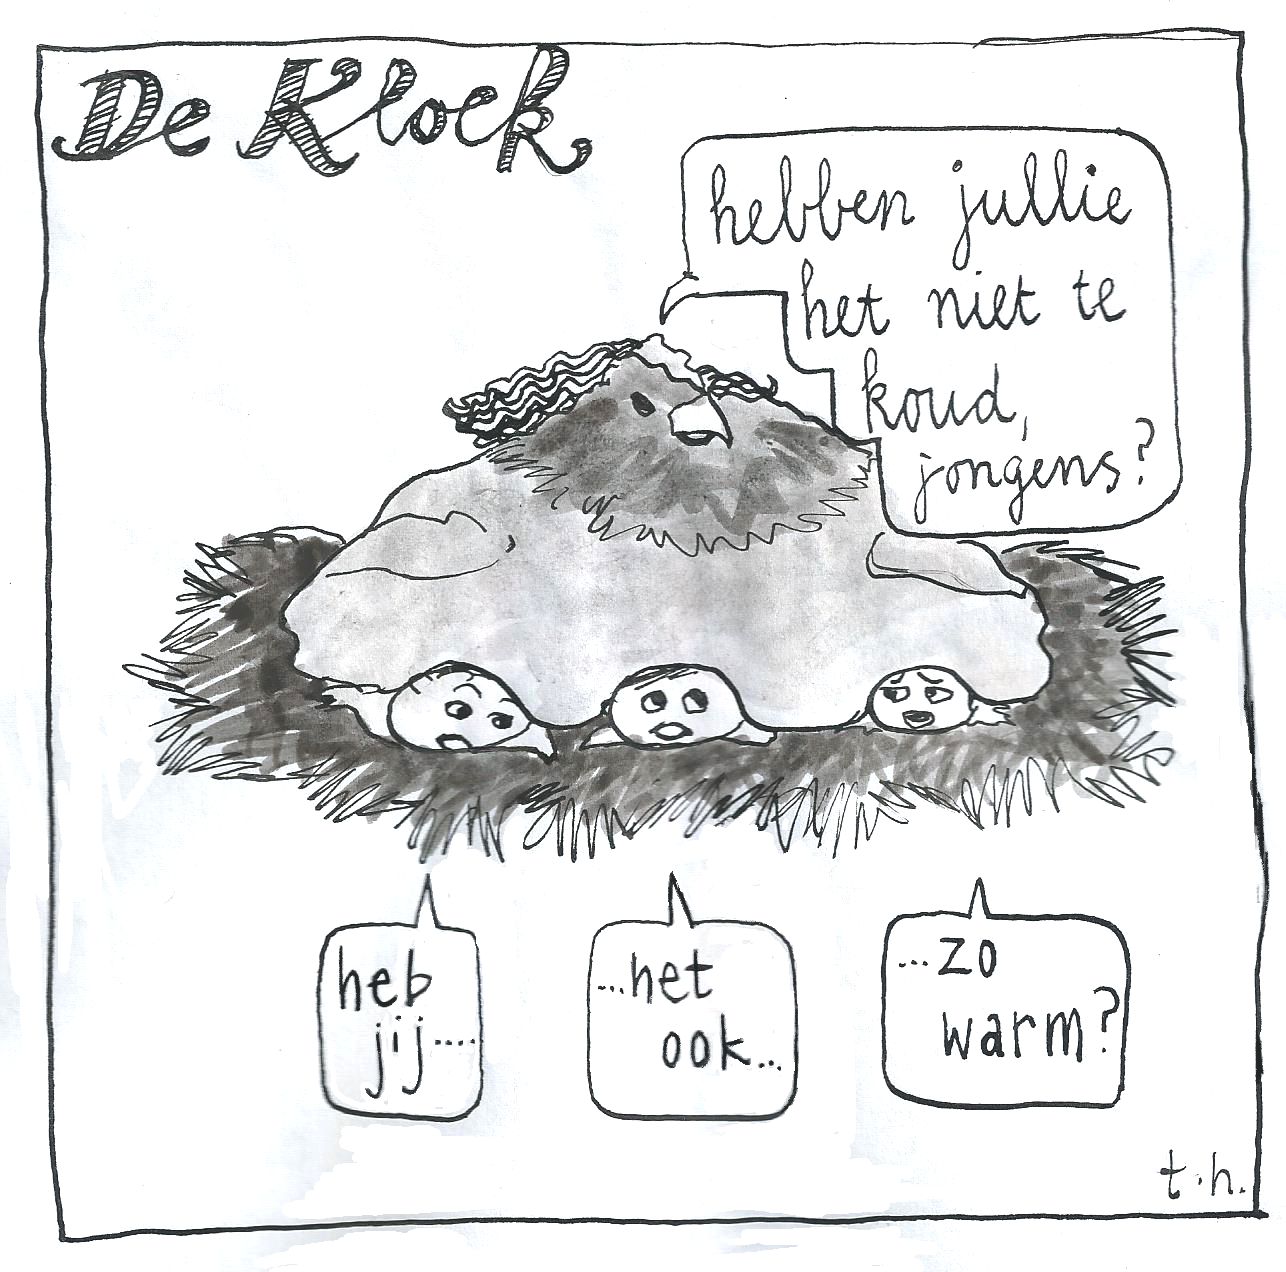 De Kloek
hebben jullie
het niet te
koud,
jongens?
heb
jij....
...het
ook...
...zo
warm?
t.h.